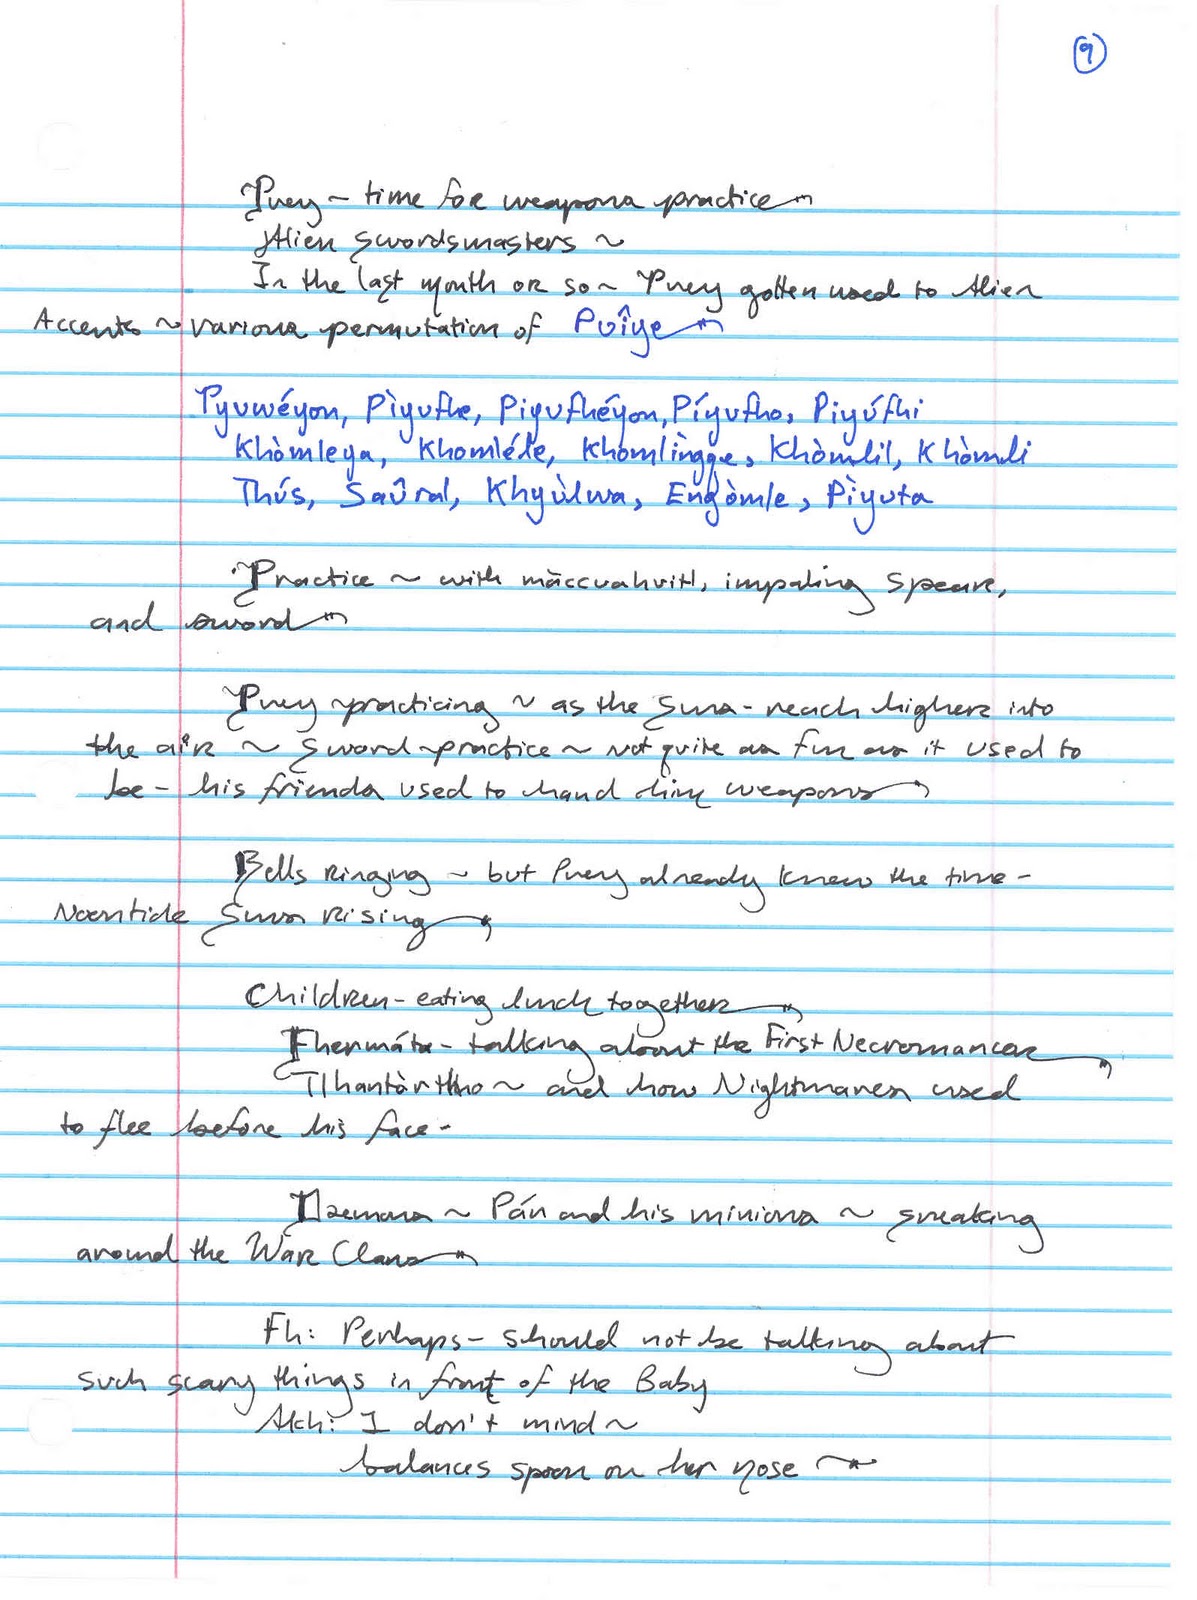 9
Puey – time for weapons practice
Alien Swordsmasters ~
In the last month or so ~ Puey gotten used to Alien
Accents ~ various permutation of Puîye
Pyuwéyon, Pìyufhe, Piyufhéyon, Píyufho, Piyúfhi
Khòmleya, Khomléte, Khomlìngqe, Khòmlil, Khòmli
Thús, Saûral, Khyùlwa, Engòmle, Pìyuta
Practice ~ with māccuahuitl, impaling spear,
and sword
Puey practicing ~ as the Suns – reach higher into
the air ~ Sword practice ~ not quite as fun as it used to
be – his friends used to hand him weapons
Bells Ringing ~ but Puey already knew the time –
Noontide Suns Rising
Children – eating lunch together
Fhermáta – talking about the First Necromancer
Tlhantàrtho ~ and how Nightmares used
to flee before his face –
Daemons ~ Pán and his minions ~ sneaking
around the War Clans
Fh: Perhaps – should not be talking about
such scary things in front of the Baby
Akh: I don't mind ~
balances spoon on her nose